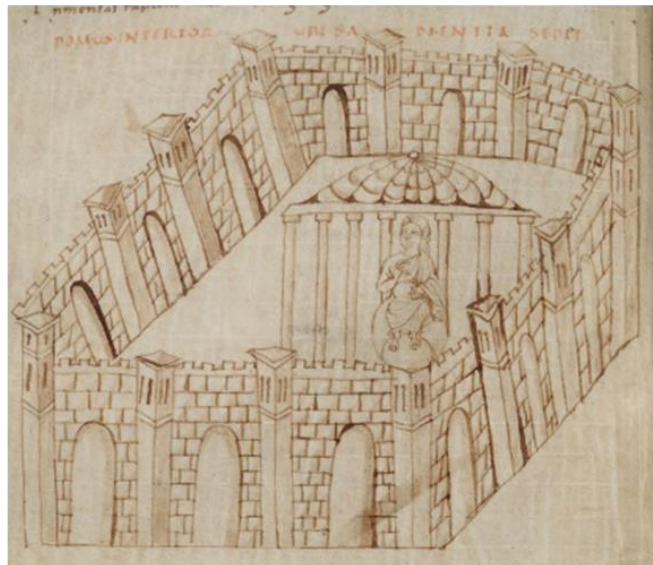 DOMUS·INTERIOR UBI SA PIENTIA SEDET